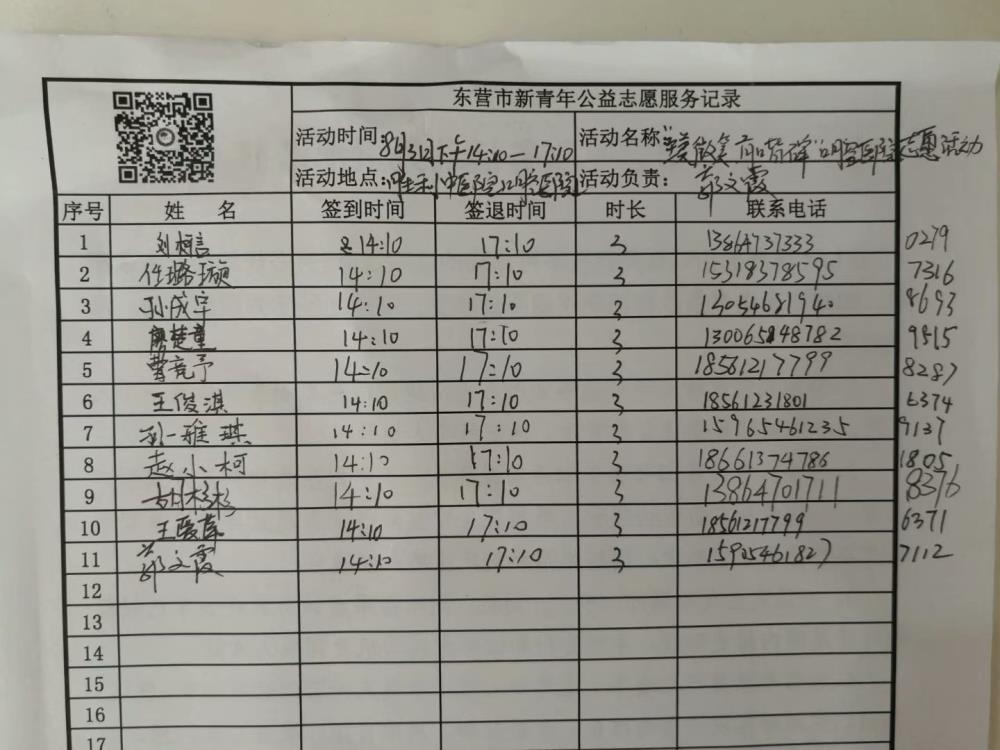 东营市新青年公益志愿服务记录
活动时间:8月31日下午14:10—17:10 活动名称 志愿活动
活动地点: 活动负责: 郭文霞
序号 姓 名 签到时间 签退时间 时长 联系电话
1 刘桐言 14:10 17:10 3 13864737333 0279
2 任璐璇 14:10 17:10 3 15318378595 7316
3 孙成宇 14:10 17:10 3 13054681940 8693
4 廖楚童 14:10 17:10 3 13006548782 9515
5 曹竞予 14:10 17:10 3 18561217799 8287
6 王俊淇 14:10 17:10 3 18561231801 6374
7 孙一雅琪 14:10 17:10 3 15965461235 9137
8 赵小柯 14:10 17:10 3 18661374786 1805
9 胡杉杉 14:10 17:10 3 13864701711 8376
10 14:10 17:10 3 18561217799 6371
11 郭文霞 14:10 17:10 3 15905461827 7112
12
13
14
15
16
17